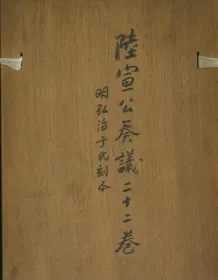 陸宣公奏議二十二卷
明弘治于氏刻本